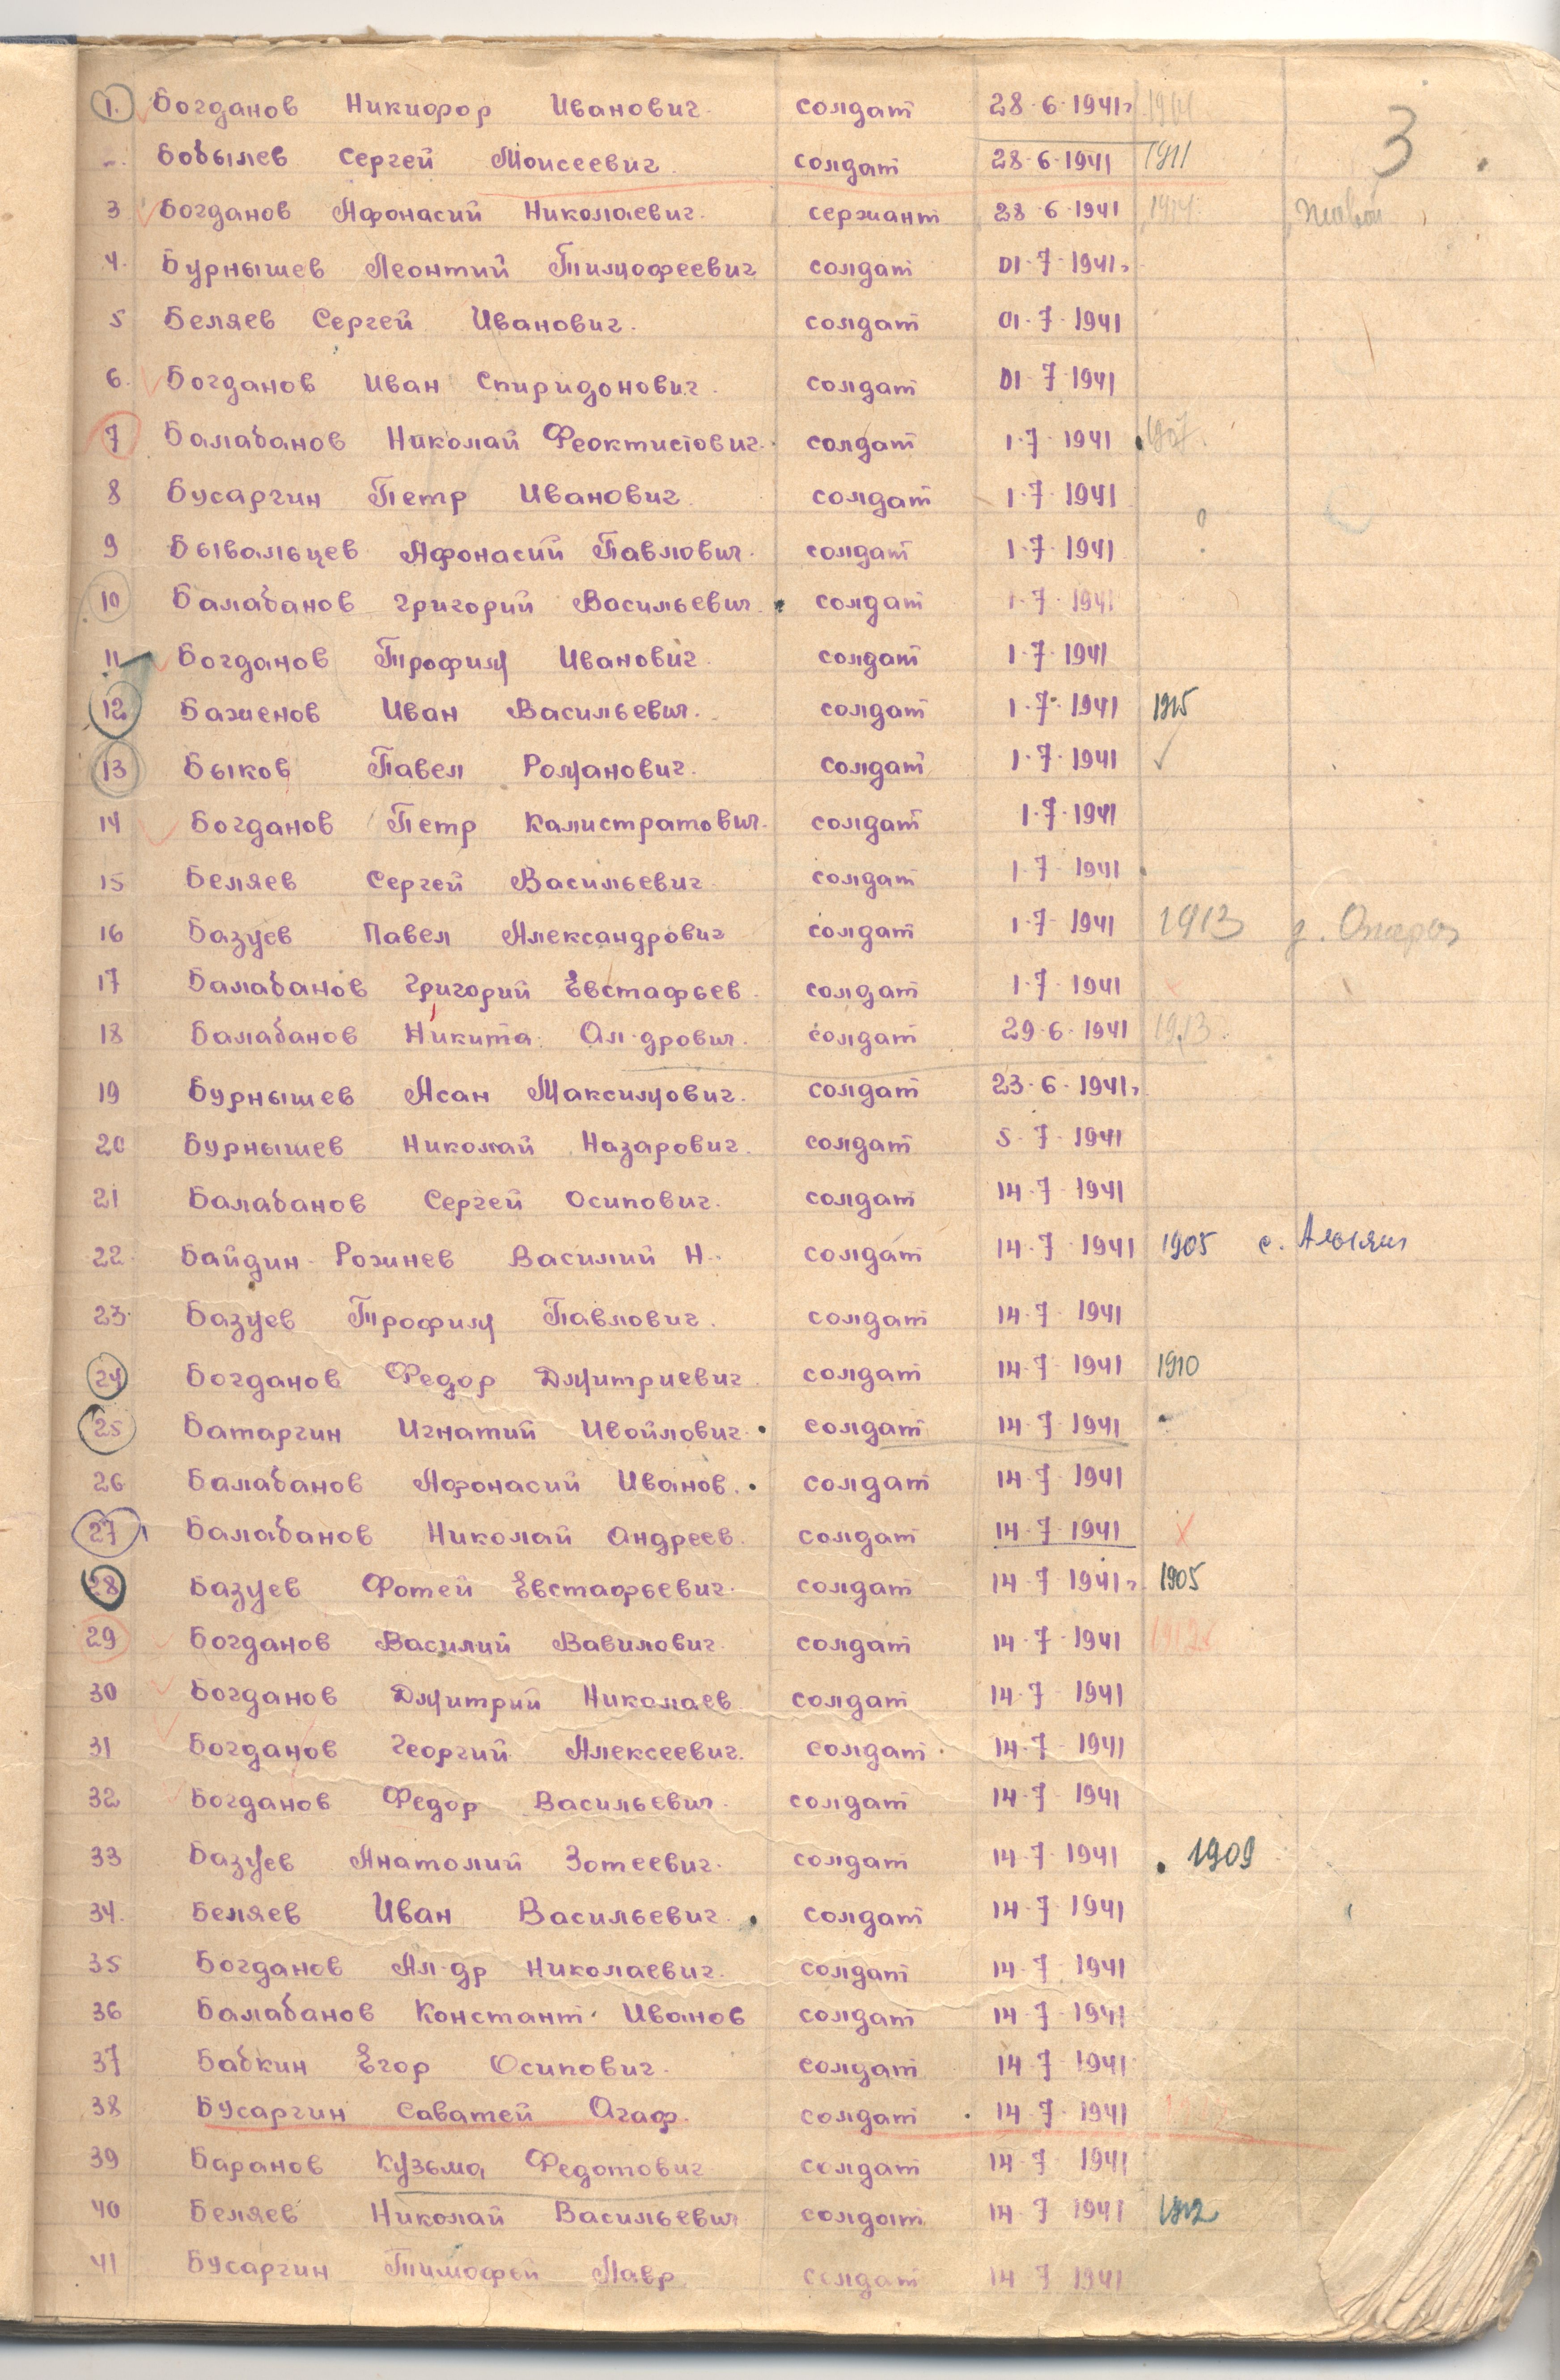 3
1. Богданов Никифор Иванович. солдат 28·6·1941г
Бобылев Сергей Моисеевич. солдат 28·6·1941 1911
3 Богданов Афонасий Николаевич. сержант 28·6·1941 живой
4. Бурнышев Леонтий Тимофеевич солдат 01·7·1941г
5 Беляев Сергей Иванович. солдат 01·7·1941
6. Богданов Иван Спиридонович. солдат 01·7·1941
7 Балабанов Николай Феоктистович. солдат 1·7·1941 1907.
8 Бусаргин Петр Иванович. солдат 1·7·1941
9 Бывальцев Афонасий Павлович. солдат 1·7·1941
10 Балабанов Григорий Васильевич. солдат 1·7·1941
11 Богданов Трофим Иванович. солдат 1·7·1941
12 Баженов Иван Васильевич. солдат 1·7·1941
13 Быков Павел Романович. солдат 1·7·1941 ✓
14 Богданов Петр Калистратович. солдат 1·7·1941
15 Беляев Сергей Васильевич солдат 1·7·1941
16 Базуев Павел Александрович солдат 1·7·1941 1913
17 Балабанов Григорий Евстафьев. солдат 1·7·1941
18 Балабанов Никита Ал-дрович. солдат 29·6·1941 1913.
19 Бурнышев Асан Максимович. солдат 23·6·1941г
20 Бурнышев Николай Назарович. солдат 5·7·1941
21 Балабанов Сергей Осипович. солдат 14·7·1941
22 Байдин-Рожнев Василий Н. солдат 14·7·1941 1905 с.
23. Базуев Трофим Павлович. солдат 14·7·1941
24 Богданов Федор Дмитриевич. солдат 14·7·1941 1910
25 Батаргин Игнатий Ивойлович. солдат 14·7·1941
26 Балабанов Афонасий Иванов. солдат 14·7·1941
27 Балабанов Николай Андреев. солдат 14·7·1941 х
28 Базуев Фотей Евстафьевич. солдат 14·7·1941г 1905
29 Богданов Василий Вавилович. солдат 14·7·1941 1912
30 Богданов Дмитрий Николаев солдат 14·7·1941
31 Богданов Георгий Алексеевич. солдат 14·7·1941
32 Богданов Федор Васильевич. солдат 14·7·1941
33 Базуев Анатолий Зотеевич. солдат 14·7·1941 1909
34. Беляев Иван Васильевич. солдат 14·7·1941
35 Богданов Ал-др Николаевич. солдат 14·7·1941
36 Балабанов Констант. Иванов солдат 14·7·1941
37 Бабкин Егор Осипович. солдат 14·7·1941
38 Бусаргин Саватей Агаф. солдат 14·7·1941
39 Баранов Кузьма Федотович солдат 14·7·1941
40 Беляев Николай Васильевич солдат 14·7·1941 1912
41 Бусаргин Тимофей Лавр солдат 14·7·1941